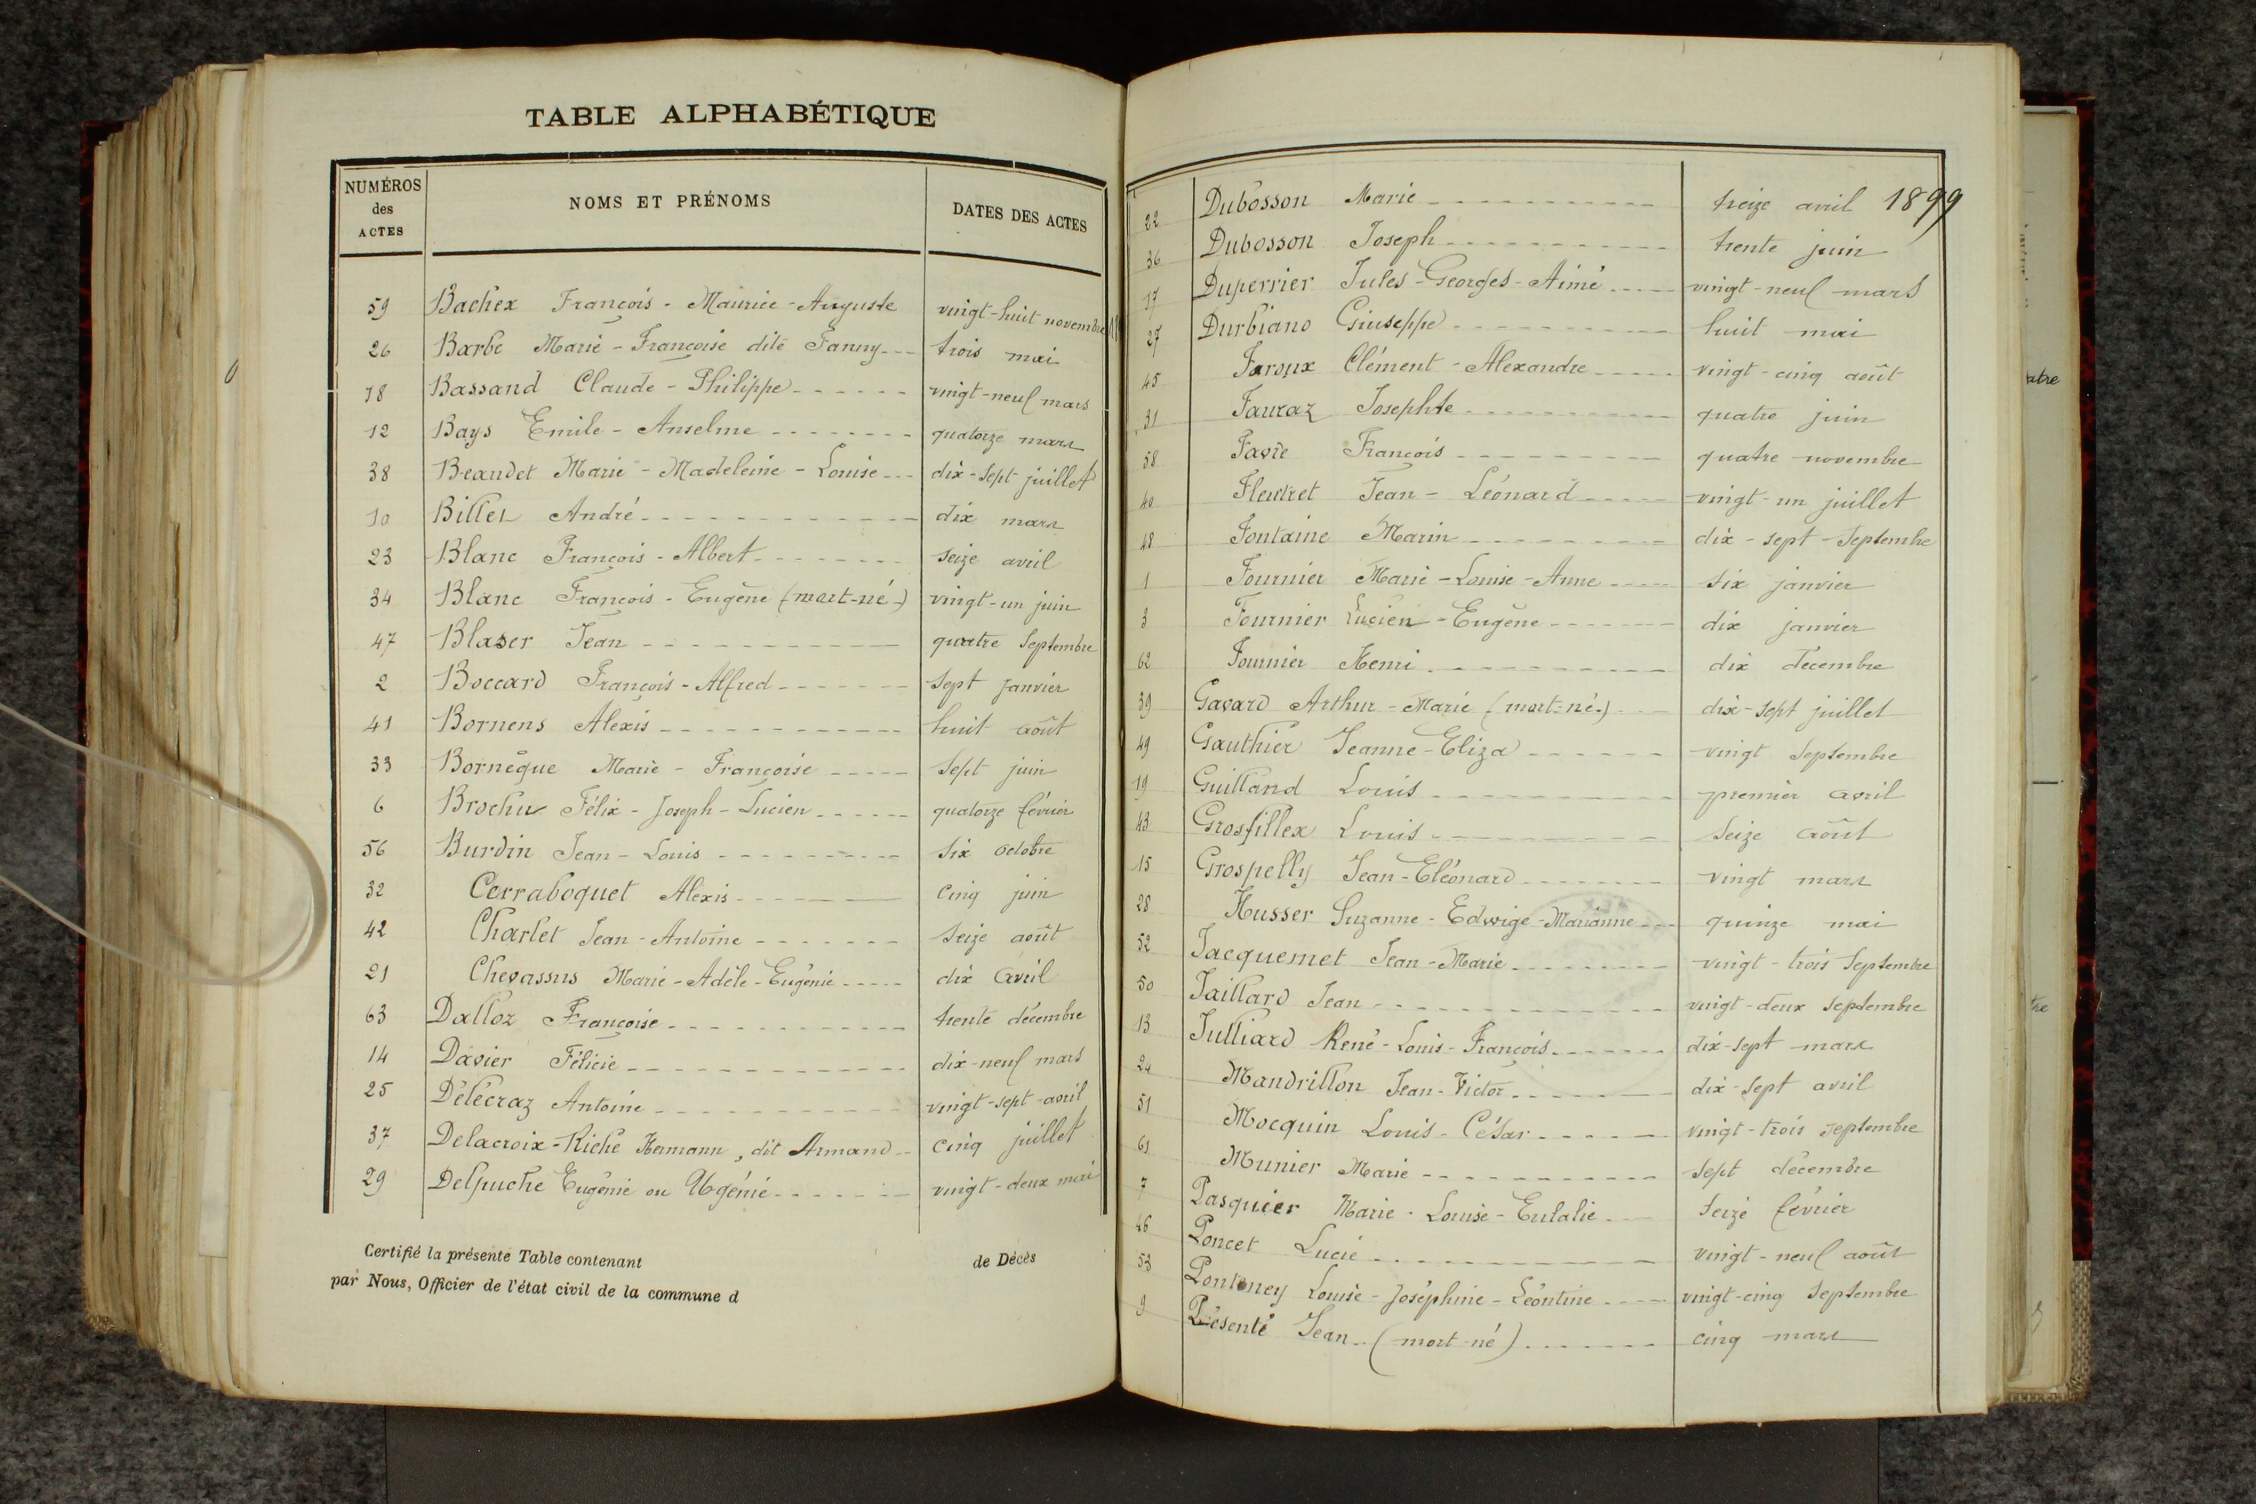 TABLE ALPHABÉTIQUE
NUMÉROS des ACTES NOMS ET PRÉNOMS DATES DES ACTES
59 Bachex François - Maurice - Auguste vingt-huit novembre
26 Barbe Marie - Françoise dite Fanny trois mai
18 Bassand Claude - Philippe vingt-neuf mars
12 Bays Emile - Anselme quatorze mars
38 Beaudet Marie - Madeleine - Louise dix-sept juillet
10 Billet André dix mars
23 Blanc François - Albert seize avril
34 Blanc François - Eugène (mort-né) vingt-un juin
47 Blaser Jean quatre Septembre
2 Boccard François - Alfred sept janvier
41 Bornens Alexis huit août
33 Bornèque Marie - Françoise sept juin
6 Brochu Félix - Joseph - Lucien quatorze février
56 Burdin Jean - Louis six octobre
32 Cerraboquet Alexis cinq juin
42 Charlet Jean - Antoine seize août
21 Chevassus Marie - Adèle - Eugénie dix avril
63 Dalloz Françoise trente décembre
14 Davier Félicie dix-neuf mars
25 Délécraz Antoine vingt-sept avril
37 Delacroix-Riché Hermann, dit Armand cinq juillet
29 Delpuche Eugénie ou Ugénie vingt-deux mai
Certifié la présente Table contenant de Décès
par Nous, Officier de l'état civil de la commune d
1899
22 Dubosson Marie treize avril
36 Dubosson Joseph trente juin
17 Duperrier Jules - Georges - Aimé vingt-neuf mars
27 Durbiano Giuseppe huit mai
45 Faroux Clément - Alexandre vingt-cinq août
31 Fauraz Josephte quatre juin
58 Favre François quatre novembre
40 Fleutret Jean - Léonard vingt-un juillet
48 Fontaine Marin dix-sept Septembre
1 Fournier Marie - Louise - Anne six janvier
3 Fournier Lucien - Eugène dix janvier
62 Fournier Henri dix décembre
39 Gavard Arthur - Marie (mort-né) dix-sept juillet
49 Gauthier Jeanne - Eliza vingt Septembre
19 Guilland Louis premier avril
43 Grosfillex Louis seize août
15 Grospelly Jean - Eléonard vingt mars
28 Husser Suzanne - Edwige - Marianne quinze mai
52 Jacquemet Jean - Marie vingt-trois Septembre
50 Jaillard Jean vingt-deux septembre
13 Julliard René - Louis - François dix-sept mars
24 Mandrillon Jean - Victor dix-sept avril
51 Mocquin Louis - César vingt-trois septembre
61 Munier Marie sept décembre
7 Pasquier Marie - Louise - Eulalie seize février
46 Poncet Lucie vingt-neuf août
53 Louise - Joséphine - Léontine vingt-cinq Septembre
9 Présenté Jean (mort-né) cinq mars